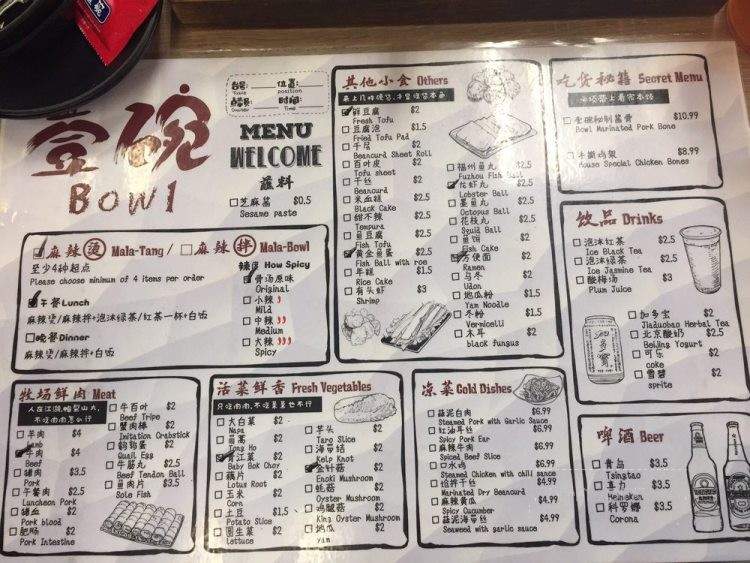 壹碗
BOWl
台号: Table
位置: position
点餐员:
时间: Time
MENU
WELCOME
蘸料
芝麻酱 $0.5
Sesame paste
麻辣烫 Mala-Tang / 麻辣拌 Mala-Bowl
至少4种起点
Please choose minimum of 4 items per order
午餐Lunch
麻辣烫/麻辣拌+泡沫绿茶/红茶一杯+白饭
晚餐Dinner
麻辣烫/麻辣拌+白饭
辣度 How Spicy
骨汤原味
Original
小辣
Mild
中辣
Medium
大辣
Spicy
牧场鲜肉 Meat
羊肉 $4
Lamb
牛肉 $4
Beef
猪肉 $3.5
Pork
午餐肉 $2.5
Luncheon Pork
猪血 $2
Pork blood
肥肠 $2
Pork Intestine
牛百叶 $2
Beef Tripe
蟹肉棒 $2
Imitation Crabstick
鹌鹑蛋 $2
Quail Egg
牛筋丸 $2.5
Beef Tendon Ball
鱼肉片 $3.5
Sole Fish
活菜鲜香 Fresh Vegetables
大白菜 $2
Napa
茼蒿 $2
Tong Ho
青江菜 $2
Baby Bok Choy
藕片 $2
Lotus Root
玉米 $2
Corn
土豆 $1.5
Potato Slice
圆生菜 $2
Lettuce
芋头 $2
Taro Slice
海带结 $2
Kelp Knot
金针菇 $2
Enoki Mushroom
蚝菇 $2
Oyster Mushroom
鸡腿菇 $2
King Oyster Mushroom
地瓜 $2
yam
其他小食 Others
鲜豆腐 $2
Fresh Tofu
豆腐泡 $1.5
Fried Tofu Pad
千层 $2
Beancurd Sheet Roll
百叶皮 $2
Tofu sheet
干丝 $2
Beancurd
米血糕 $2.5
Black Cake
甜不辣 $2.5
Tempura
鱼豆腐 $2.5
Fish Tofu
黄金鱼蛋 $2.5
Fish Ball with roe
年糕 $1.5
Rice Cake
有头虾 $3
Shrimp
福州鱼丸 $2.5
Fuzhou Fish Ball
龙虾丸 $2.5
Lobster Ball
墨鱼丸 $2.5
Octopus Ball
花枝丸 $2.5
Squid Ball
鱼饼 $2.5
Fish Cake
方便面 $2
Ramen
乌冬 $2
Udon
地瓜粉 $2
Yam Noodle
冬粉 $2
Vermicelli
木耳 $2
black fungus
凉菜 Cold Dishes
蒜泥白肉 $6.99
Steamed Pork with Garlic Sauce
红油耳丝 $6.99
Spicy Pork Ear
麻辣牛肉 $6.99
Spiced Beef Slice
口水鸡 $6.99
Steamed Chicken with chili sauce
炝拌干丝 $4.99
Marinated Dry Beancurd
麻辣黄瓜 $4.99
Spicy Cucumber
蒜泥海带丝 $4.99
Seaweed with garlic sauce
吃货秘籍 Secret Menu
壹碗秘制酱骨 $10.99
Bowl Marinated Pork Bone
手撕鸡架 $8.99
House Special Chicken Bones
饮品 Drinks
泡沫红茶 $2.5
Ice Black Tea
泡沫绿茶 $2.5
Ice Jasmine Tea
酸梅汤 $3
Plum Juice
加多宝 $2
Jiaduobao Herbal Tea
北京酸奶 $2.5
Beijing Yogurt
可乐 $2
coke
雪碧 $2
sprite
啤酒 Beer
青岛 $3.5
Tsingtao
喜力 $3.5
Heineken
科罗娜 $3.5
Corona